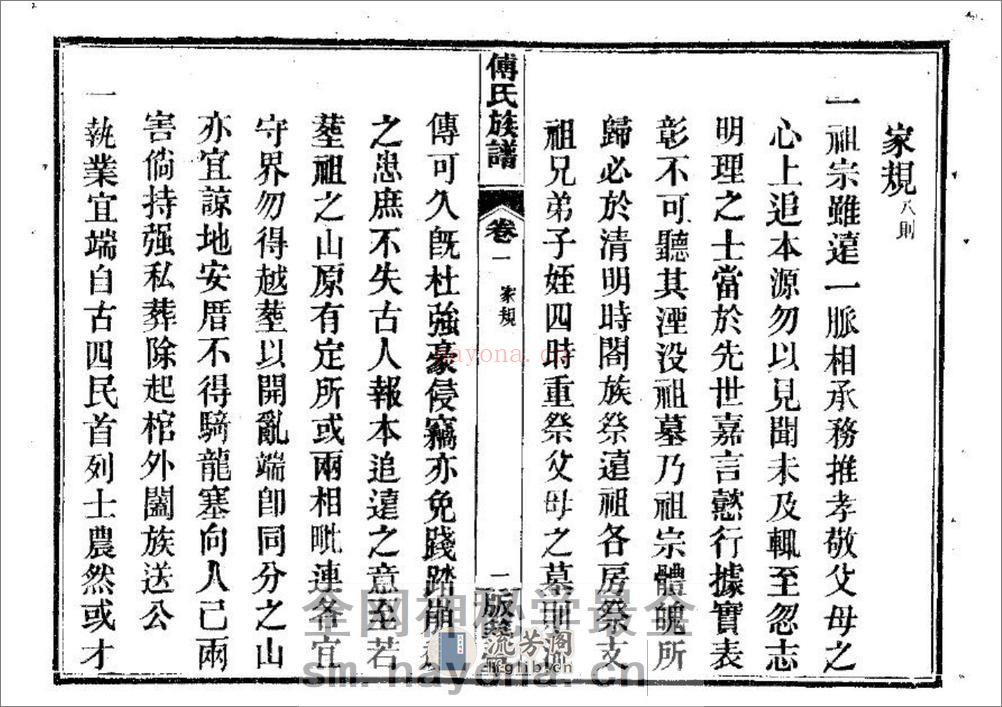 家規八則
一祖宗雖遠一脈相承務推孝敬父母之
心上追本源勿以見聞未及輒至忽志
明理之士當於先世嘉言懿行據實表
彰不可聽其湮没祖墓乃祖宗體魄所
歸必於清明時閤族祭遠祖各房祭支
祖兄弟子姪四時重祭父母之墓則
傅氏族譜
卷一
家規
一
版築
傳可久旣杜強豪侵竊亦免踐踏崩
之患庶不失古人報本追遠之意至若
塟祖之山原有定所或兩相毗連各宜
守界勿得越塟以開亂端卽同分之山
亦宜諒地安厝不得騎龍塞向人己兩
害倘持强私葬除起棺外闔族送公
一執業宜端自古四民首列士農然或才
nayona.cn
全网神秘学最全
流芳阁
sm.nayona.cn